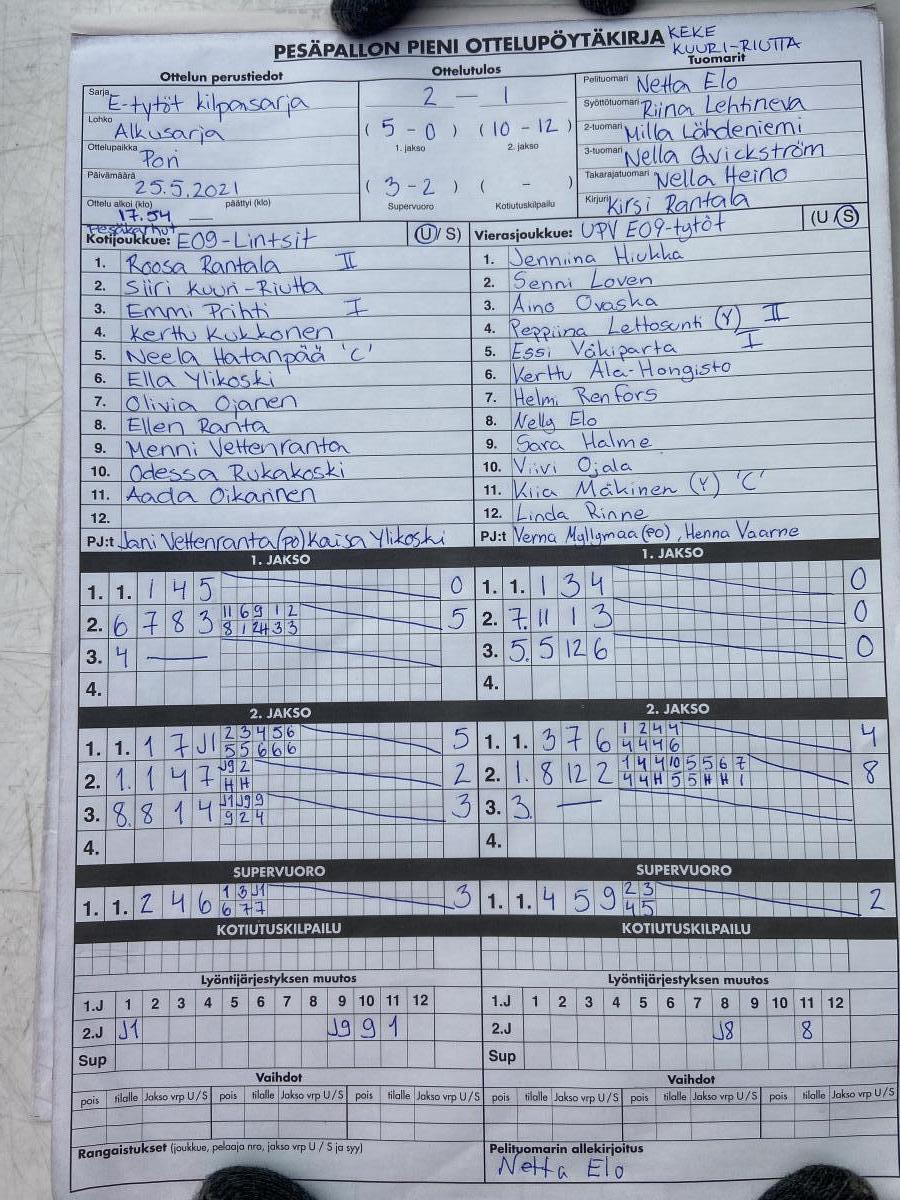 PESÄPALLON PIENI OTTELUPÖYTÄKIRJA KEKE
KUURI-RIUTTA
Ottelun perustiedot
Ottelutulos
Tuomarit
Sarja E-tytöt kilpasarja
Lohko Alkusarja
Ottelupaikka Pori
Päivämäärä 25.5.2021
Ottelu alkoi (klo) päättyi (klo)
17.54 —
2 — 1
( 5 - 0 ) ( 10 - 12 )
1. jakso 2. jakso
( 3 - 2 ) ( - )
Supervuoro Kotiutuskilpailu
Pelituomari Netta Elo
Syöttötuomari Riina Lehtineva
2-tuomari Milla Lähdeniemi
3-tuomari Nella Qvickström
Takarajatuomari Nella Heino
Kirjuri Kirsi Rantala
Pesäkarhut
Kotijoukkue: E09-Lintsit (U/ S)
1. Roosa Rantala II
2. Siiri Kuuri-Riutta
3. Emmi Prihti I
4. Kerttu Kukkonen
5. Neela Hatanpää 'C'
6. Ella Ylikoski
7. Olivia Ojanen
8. Ellen Ranta
9. Menni Vettenranta
10. Odessa Rukakoski
11. Aada Oikarinen
12.
PJ:t Jani Vettenranta (PO) Kaisa Ylikoski
Vierasjoukkue: UPV E09-tytöt (U /S)
1. Jenniina Hiukka
2. Senni Loven
3. Aino Ovaska
4. Peppiina Lettosunti (Y) II
5. Essi Väkiparta I
6. Kerttu Ala-Hongisto
7. Helmi Renfors
8. Nelly Elo
9. Sara Halme
10. Viivi Ojala
11. Kiia Mäkinen (Y) 'C'
12. Linda Rinne
PJ:t Verna Myllymaa (PO), Henna Vaarne
1. JAKSO
1. 1. 1 4 5 0
2. 6 7 8 3 11 6 9 1 2 5
8 1 2H 3 3
3. 4 —
4.
1. JAKSO
1. 1. 1 3 4 0
2. 7. 11 1 3 0
3. 5. 5 12 6 0
4.
2. JAKSO
1. 1. 1 7 J1 2 3 4 5 6 5
5 5 6 6 6
2. 1. 1 4 7 J9 2 2
H H
3. 8. 8 1 4 J1 J9 9 3
9 2 4
4.
2. JAKSO
1. 1. 3 7 6 1 2 4 4 4
4 4 4 6
2. 1. 8 12 2 1 4 4 10 5 5 6 7 8
4 4 H 5 5 H H 1
3. 3. —
4.
SUPERVUORO
1. 1. 2 4 6 1 3 J1 3
6 7 7
SUPERVUORO
1. 1. 4 5 9 2 3 2
4 5
KOTIUTUSKILPAILU
KOTIUTUSKILPAILU
Lyöntijärjestyksen muutos
1.J 1 2 3 4 5 6 7 8 9 10 11 12
2.J J1 J9 9 1
Sup
Lyöntijärjestyksen muutos
1.J 1 2 3 4 5 6 7 8 9 10 11 12
2.J J8 8
Sup
Vaihdot
pois tilalle Jakso vrp U/S pois tilalle Jakso vrp U/S pois tilalle Jakso vrp U/S
Vaihdot
pois tilalle Jakso vrp U/S pois tilalle Jakso vrp U/S pois tilalle Jakso vrp U/S
Rangaistukset (joukkue, pelaaja nro, jakso vrp U / S ja syy)
Pelituomarin allekirjoitus
Netta Elo